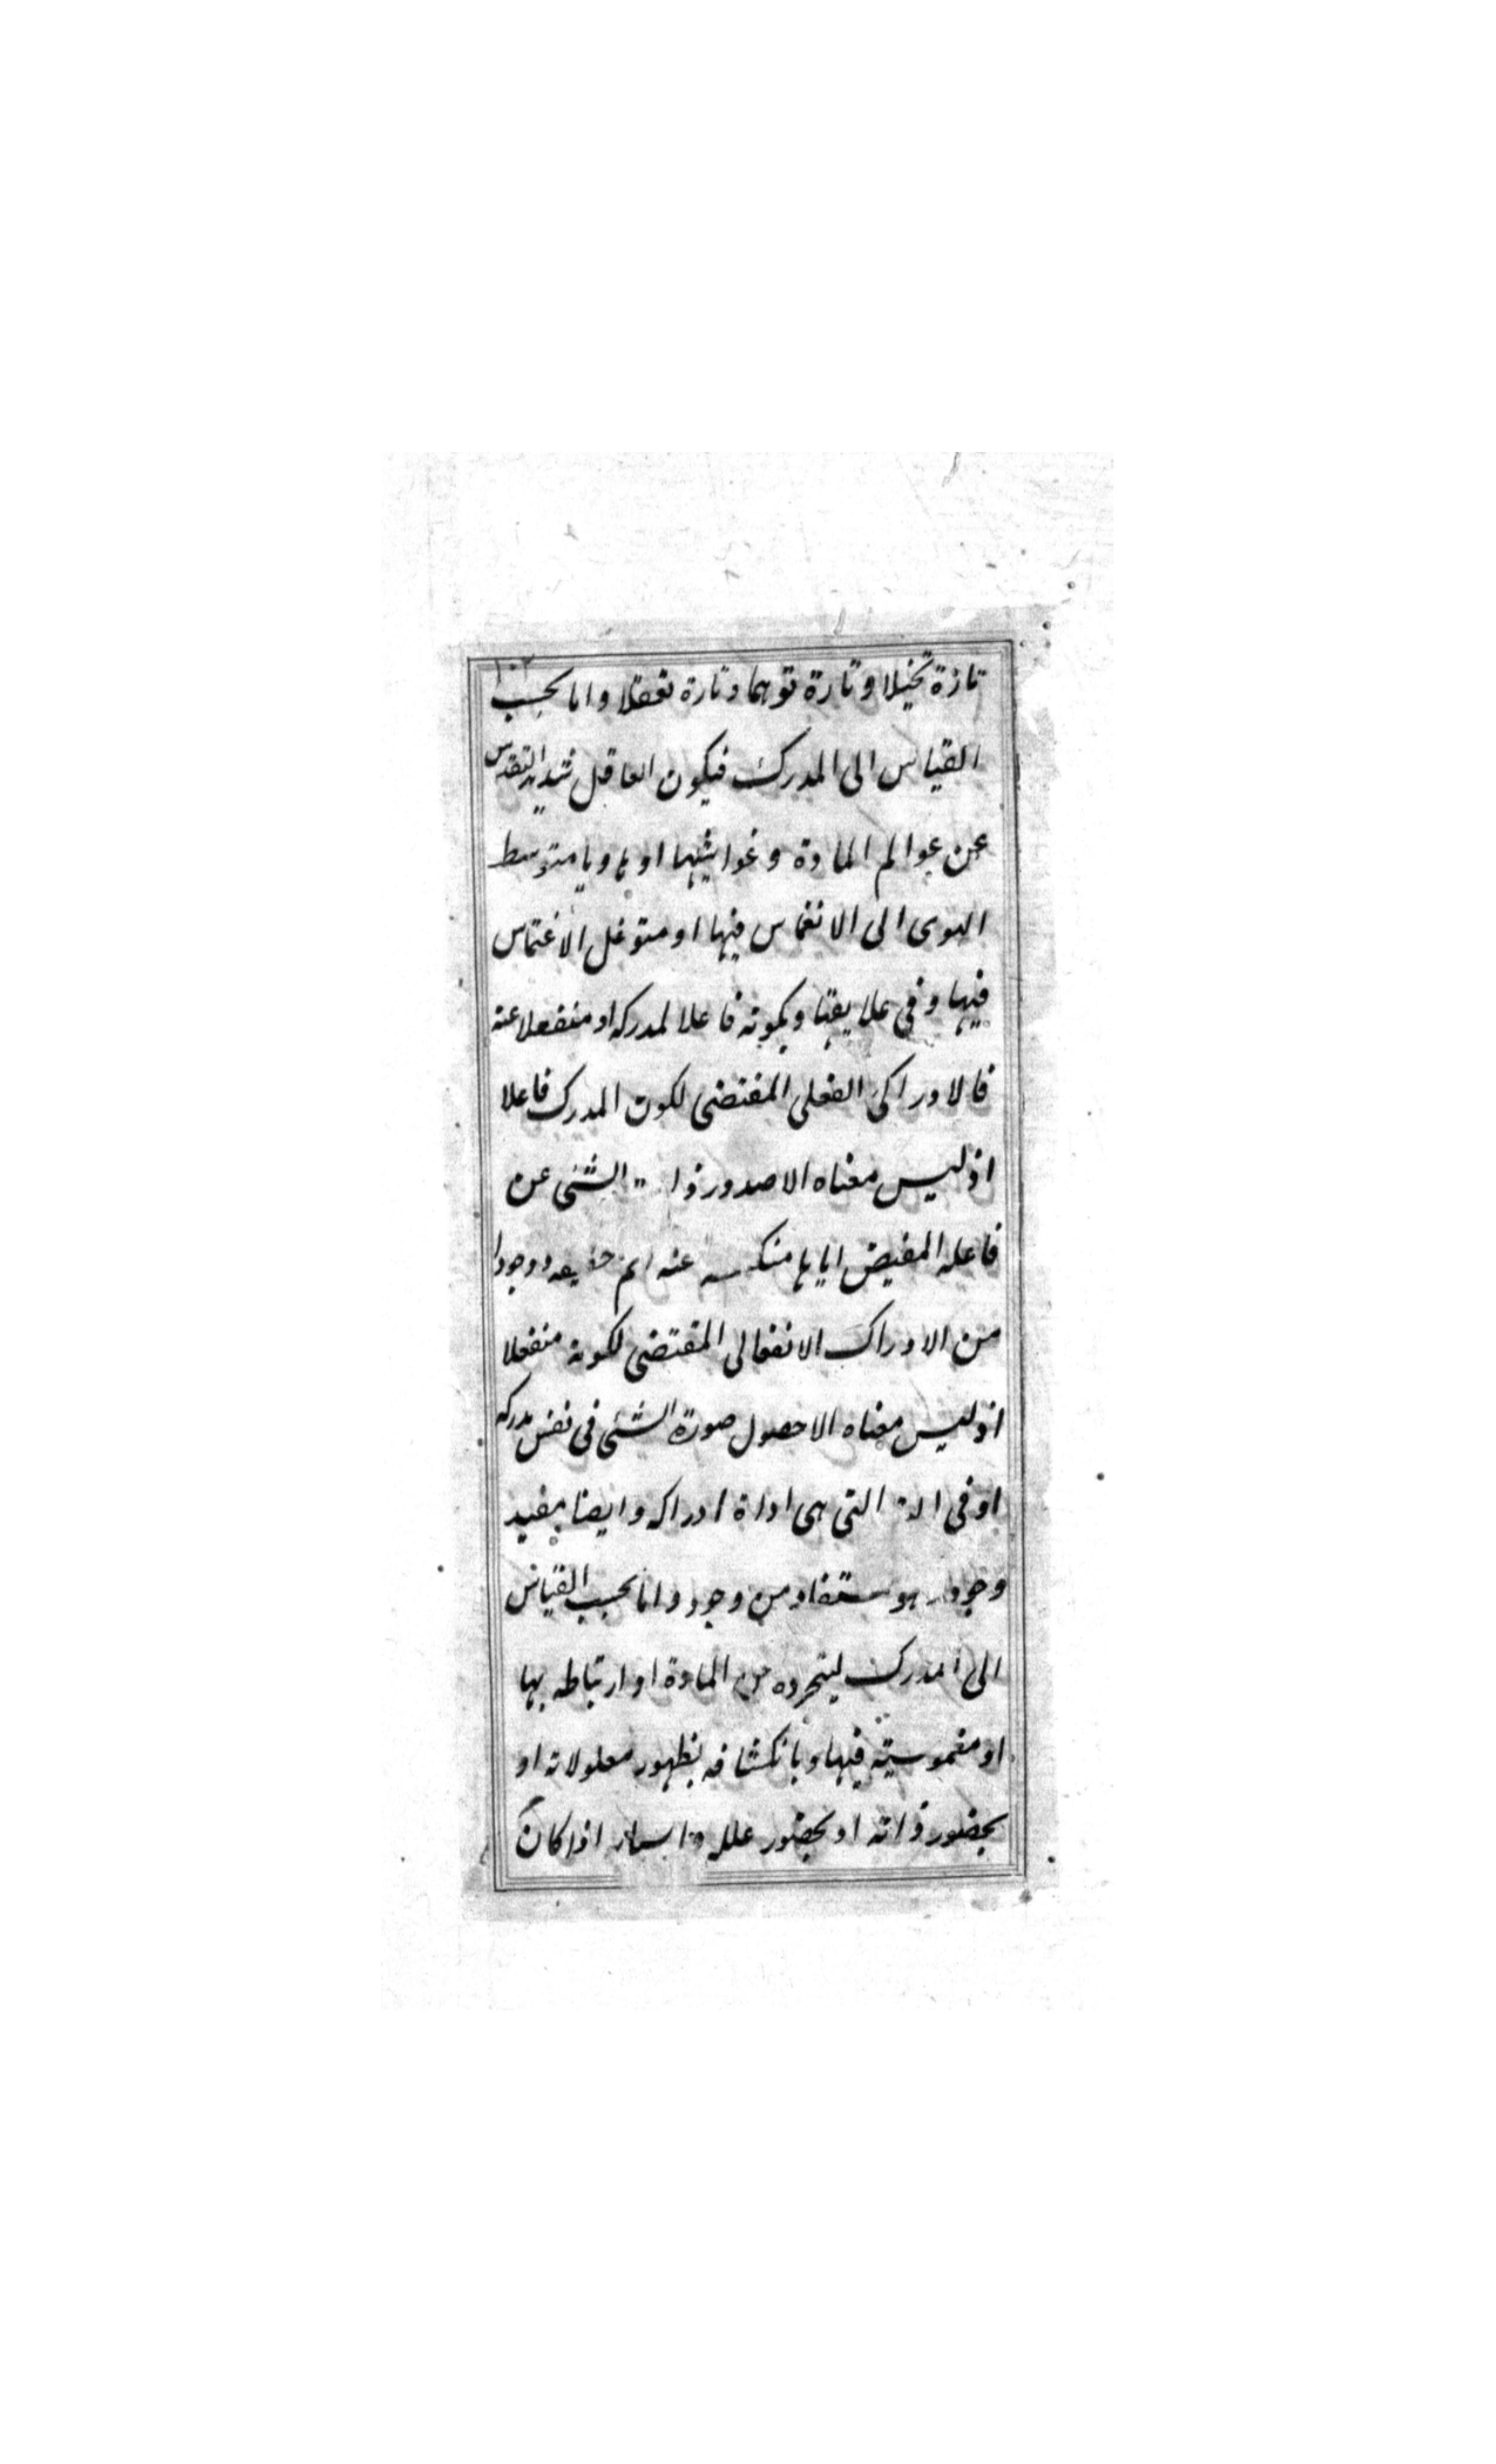 ١٠٢
تارة تخيلا وتارة توهما وتارة تعقلا واما بحسب
القياس الى المدرك فيكون العاقل شديد التقدس
عن عوالم المادة وغواشيها او هاويا متوسط
الهوى الى الانغماس فيها او متوغل الاغتماس
فيها وفي علايقها وبكونه فاعلا لمدركه او منفعلا عنه
فالادراك الفعلى المقتضى لكون المدرك فاعلا
اذ ليس معناه الا صدور ذات الشئ عن
فاعله المفيض اياها منكشفة عنه اتم وجودا
من الادراك الانفعالى المقتضى لكونه منفعلا
اذ ليس معناه الا حصول صورة الشئ فى نفس مدركه
او فى الته التى هى اداة ادراكه وايضا مفيد
وجود هو مستفاد من وجود واما بحسب القياس
الى المدرك ليتجرده عن المادة او ارتباطه بها
او مغموسيته فيها وبانكشافه بظهور معلولاته او
بحضور ذاته او بحضور علله واسبابه اذا كان